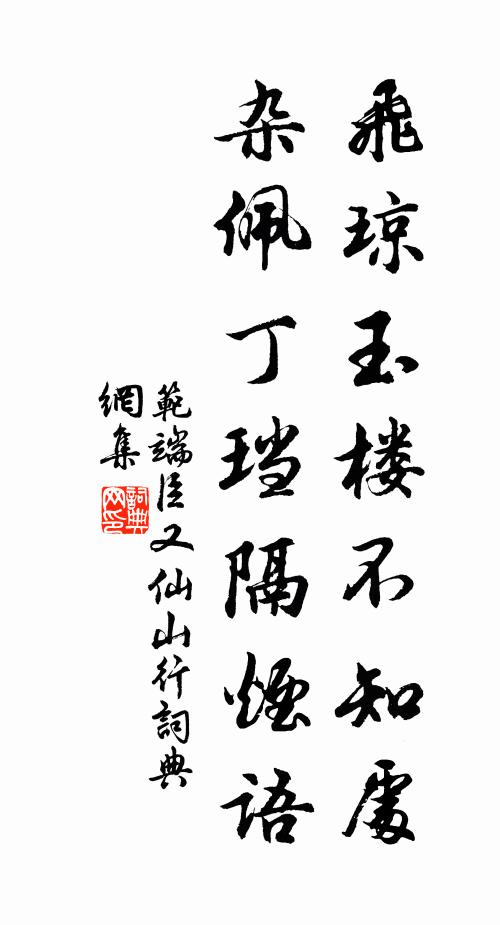 飛琼玉楼不知處
杂佩丁珰隔煙語
範端臣又仙山行詞典
網集
詞典
网印